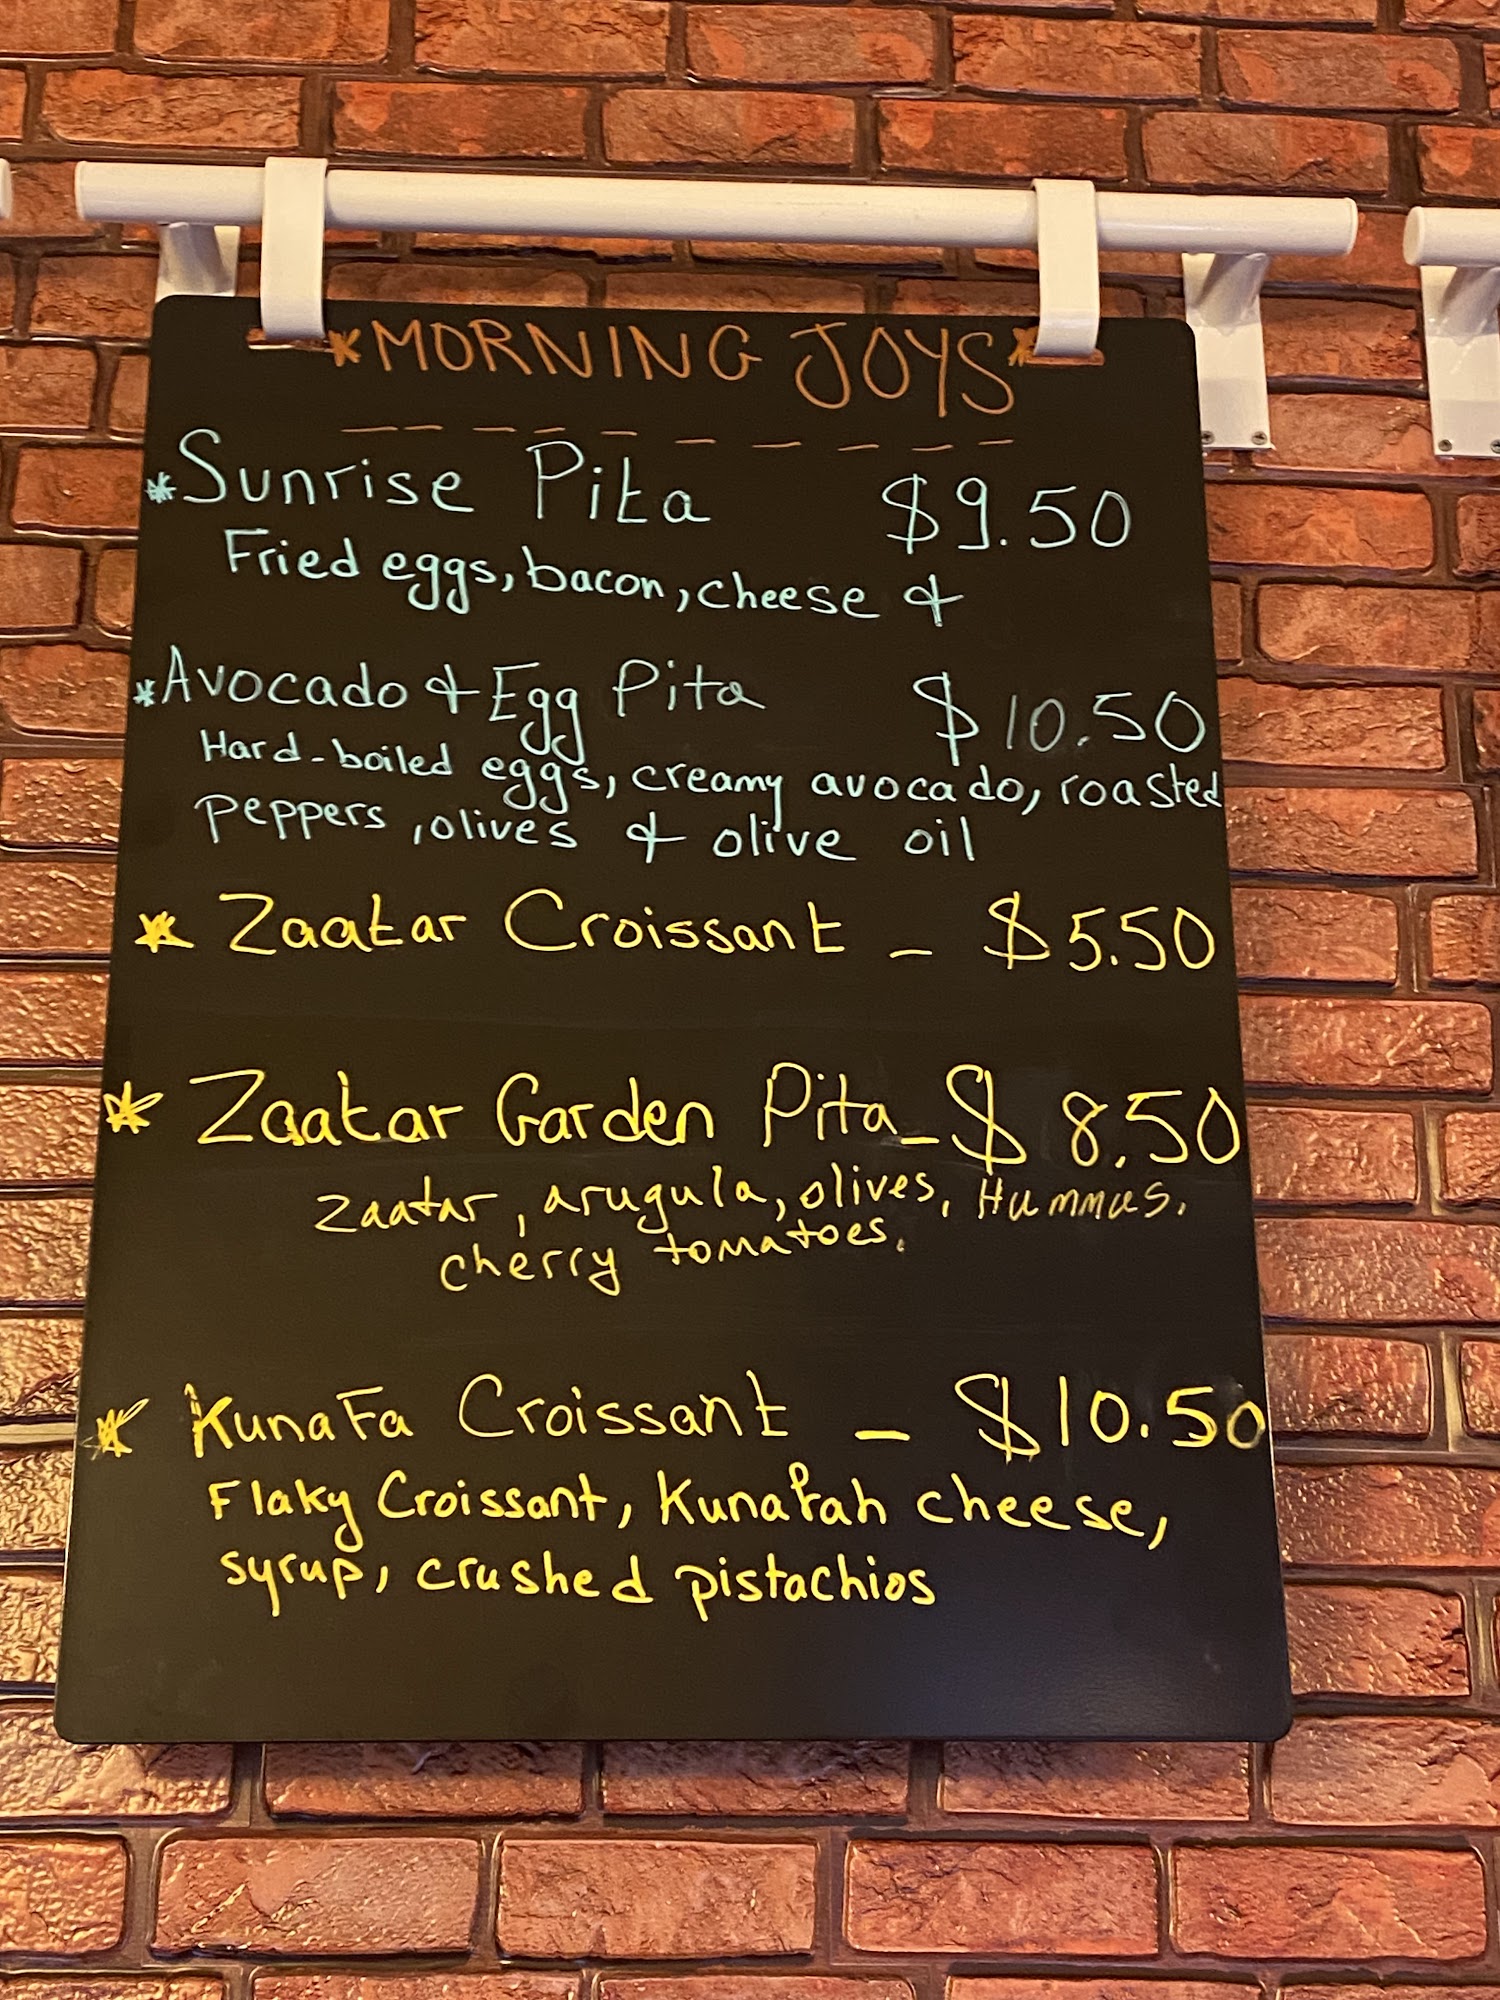 *MORNING JOYS*
*Sunrise Pita $9.50
Fried eggs, bacon, cheese &
*Avocado & Egg Pita $10.50
Hard-boiled eggs, creamy avocado, roasted
peppers, olives & olive oil
* Zaatar Croissant - $5.50
* Zaatar Garden Pita - $8.50
zaatar, arugula, olives, Hummus,
cherry tomatoes.
* KunaFa Croissant - $10.50
Flaky Croissant, Kunafah cheese,
syrup, crushed pistachios